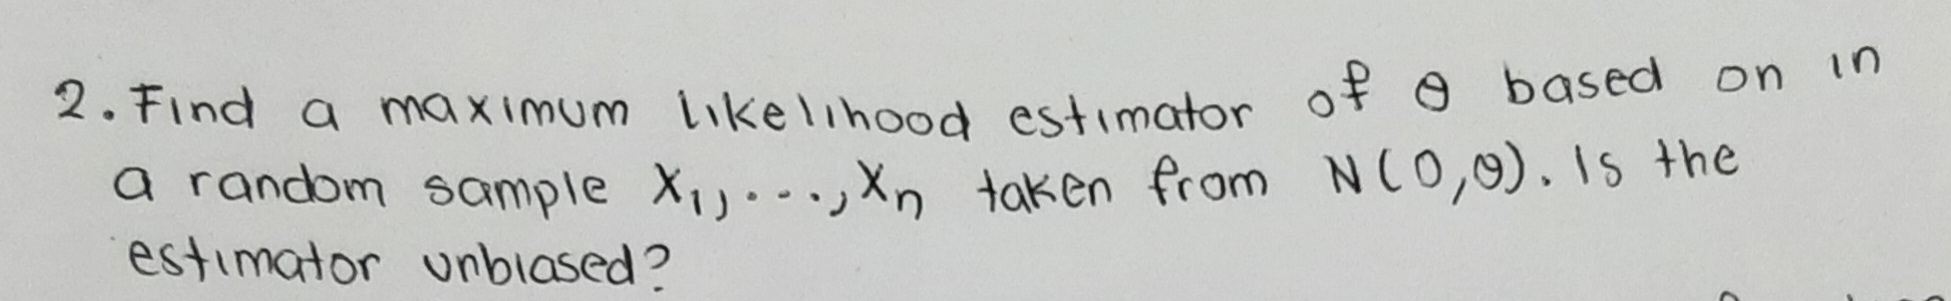 2. Find a maximum likelihood estimator of θ based on in
a random sample X₁,...,Xₙ taken from N(0,θ). Is the
estimator unbiased?